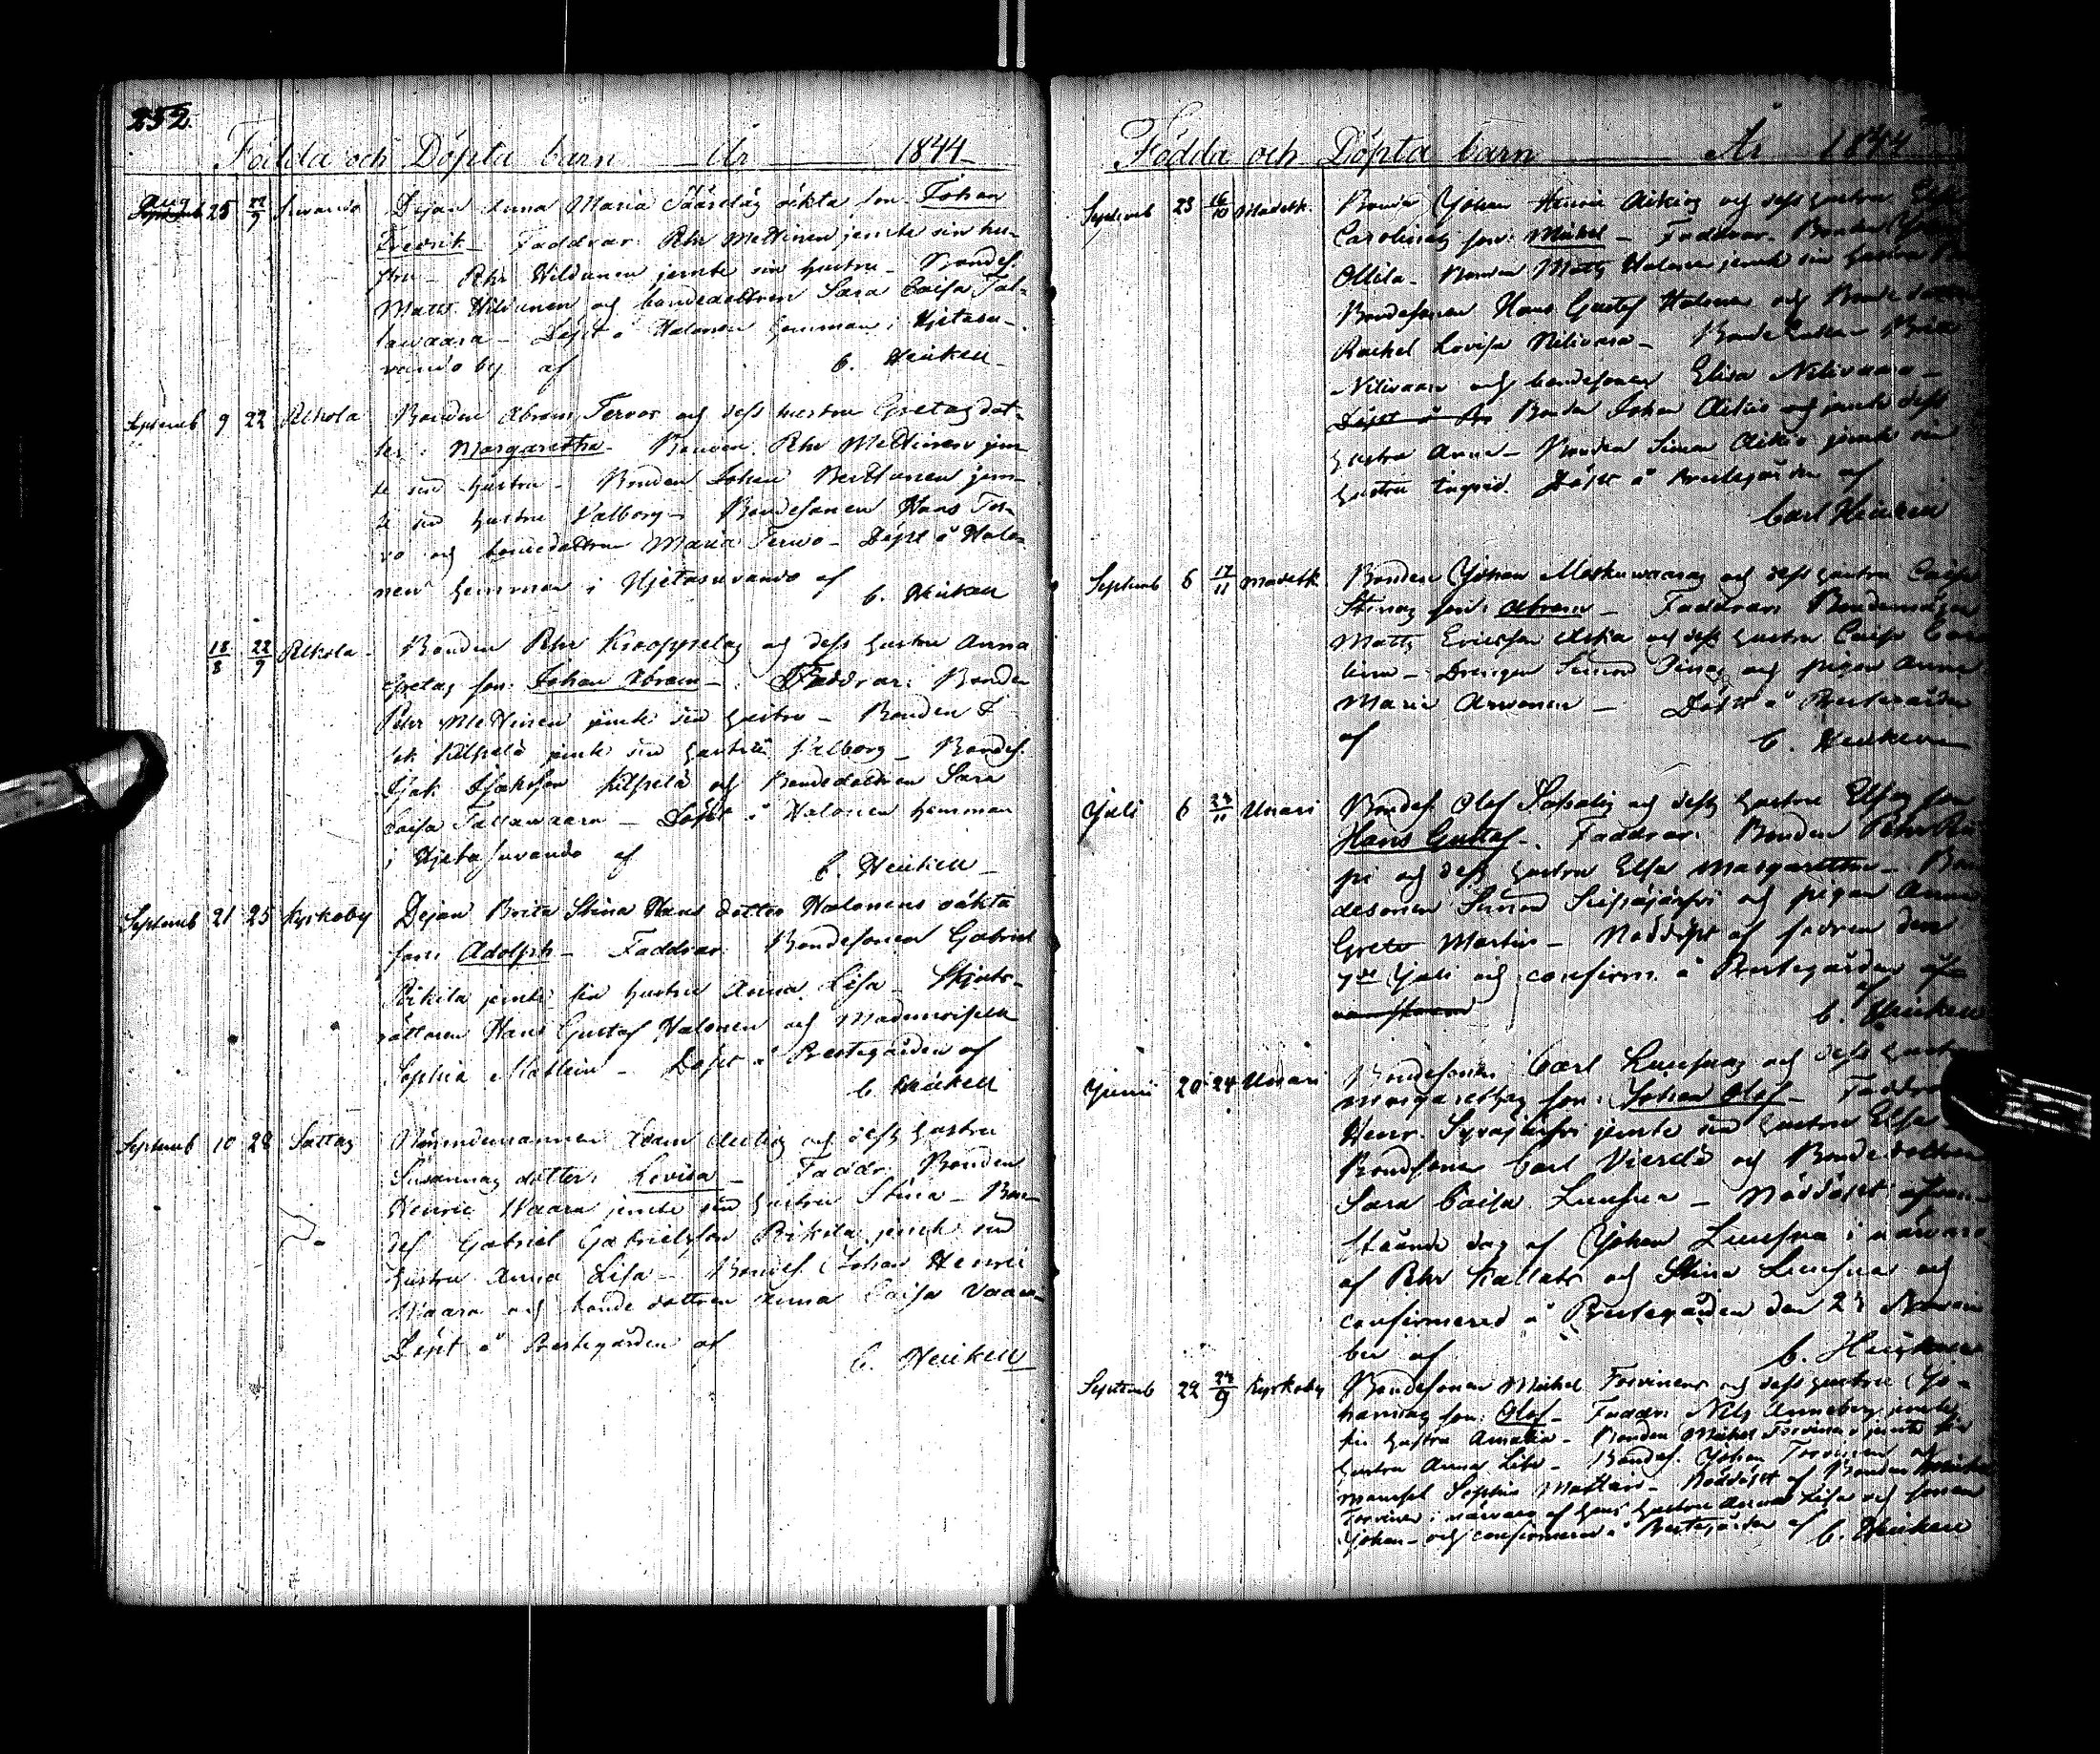 252.
Födda och Döpta barn År 1844
Aug 25 22/9 Suvando Pejan Anna Maria oäkta son Johan
Fredrik Faddrar: Pehr Mettinen jemte sin hu-
stru - Pehr Hildunen jemte sin hustru - Bondes.
Matts Hildunen och bondedottren Sara Caisa Tal-
lawaara - Döpt å Halonen hemman i Hjetasu-
vando by af C. Heikell
Septemb 9 22 Pelkola Bonden Abram Tervos och dess hustru Gretas dot-
ter: Margaretha - Bonden Pehr Mettinen jem-
te sin hustru - Bonden Johan Berttunen jem-
te sin hustru Valborg - Bondesonen Hans Ter-
vo och bondedottren Maria Tervo - Döpt å Halo-
nen hemman i Hjetasuvando af C. Heikell
18/8 22/9 Pelkola Bonden Pehr och dess hustru Anna
Gretas son: Johan Abram - Faddrar: Bonden
Pehr Mettinen jemte sin hustru - Bonden I-
sak Kilpelä jemte sin hustru Valborg - Bondes.
Isak Isaksson Kilpelä och Bondedottren Sara
Caisa Tallawaara - Döpt å Halonen hemman
i Hjetasuvando af C. Heikell
Septemb 21 25 Kyrkoby Pejan Brita Stina Hans dotter Halonens oäkta
son: Adolph - Faddrar: Bondesonen Gabriel
Rikila jemte sin hustru Anna Lisa - Skjuts-
rättaren Hans Gustaf Halonen och Mademoiselle
Sophia Mattlin - Döpt å Prestegården af
C. Heikell
Septemb 10 28 Sattas Nämndemannen Adam och dess hustru
Susannas dotter: Lovisa - Faddr: Bonden
Henric Waara jemte sin hustru Stina - Bon-
des. Gabriel Gabrielsson Rikila jemte sin
hustru Anna Lisa - Bondes. Johan Henric
Waara och bonde dottren Anna Caisa Vaara
Döpt å Prestegården af C. Heikell
Födda och Döpta barn År 1844
Septemb 23 16/10 Madetk. Bonden Johan Henric Aikios och dess hustru
Carolinas son: Michel - Faddrar: Bonden
Ollila - Bonden Matts Halonen jemte sin hustru
Bondesonen Hans Gustaf Halonen och Bonde dottren
Rachel Lovisa Nilivaara - Bonde
Nilivaara och bondesonen Elisa Nilivaara -
Bonden Johan Aikio och jemte dess
hustru Anna - Bonden Simon Aikio jemte sin
hustru Ingrid. Döpt å Prestegården af
Carl Heikell
Septemb 6 17/11 Madetk. Bonden Johan Moskuwaaras och dess hustru Caisa
Stinas son: Abram - Faddrar:
Matts Ericsson Aska och dess hustru Caisa
- Drengen Simon och pigan Anna
Maria Arwonen - Döpt å Prestegården
af C. Heikell
Juli 6 24/11 Unari Bondes. Olof och dess hustru Elsas son
Hans Gustaf - Faddrar: Bonden Pehr
pi och dess hustru Elsa Margaretha - Bon-
desonen Simon och pigan Anna
Greta Martin - Nöddöpt af fadren den
7de Juli och confirm. å Prestegården
af
C. Heikell
Junii 20 24 Unari Bondesonen Carl Luusuas och dess
Margarethas son: Johan Olof -
Henr. Syväjärvi jemte sin hustru Elsa
Bondesonen Carl Vierelä och Bondedottren
Sara Caisa Luusua - Nöddöpt
stående dag af Johan Luusua i närvaro
af Pehr och Stina Luusua och
confirmered å Prestegården den 24 Novem-
ber af C. Heikell
Septemb 22 24/9 Kyrkoby Bondesonen Michel Torvinens och dess hustru Jo-
hannas son: Olof - Faddr: Nils Anneberg jemte
sin hustru Amalia - Bonden Michel Torvinen jemte sin
hustru Anna Lisa - Bondes. Johan Torvinen och
mamsel Sophia Mattlin - Nöddöpt af Bonden Michel
Torvinen i närvaro af hans hustru Anna Lisa och sonen
Johan - och confirmerad å Prestegården af C. Heikell